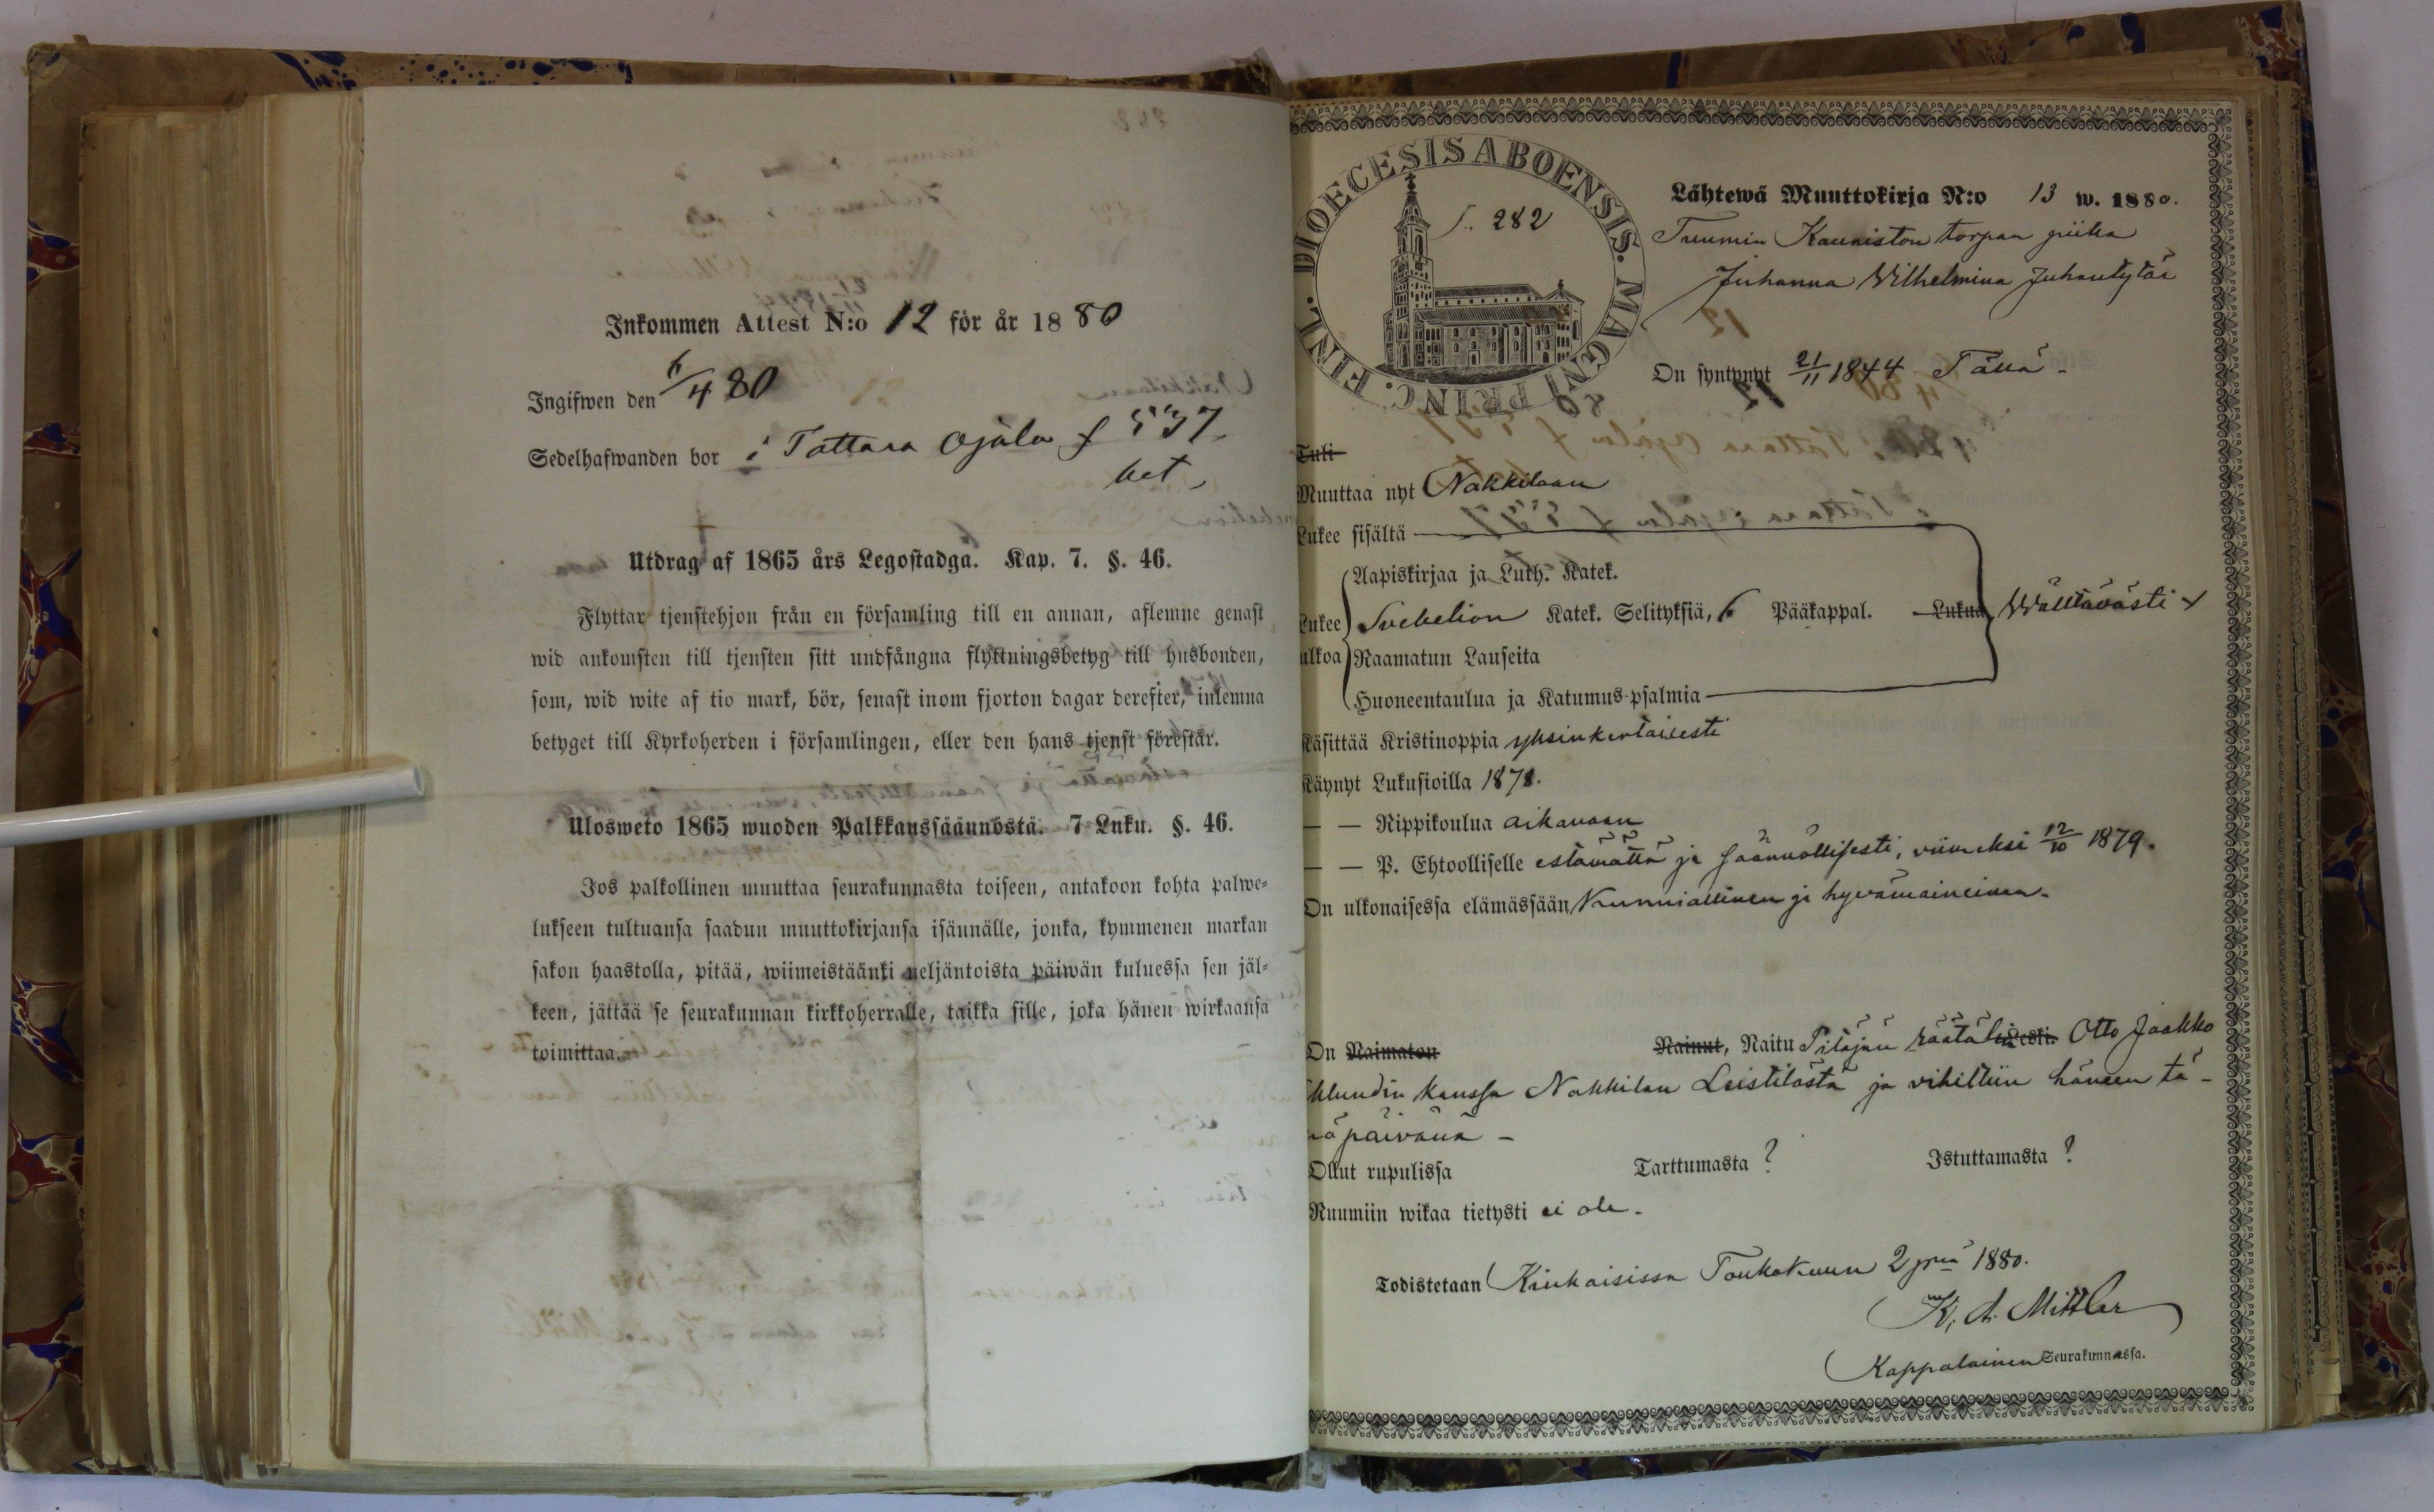 Inkommen Attest N:o 12 för år 1880
Ingifwen den 6/4 80
Sedelhafwanden bor i Tattara Ojala f 537
bet
Utdrag af 1865 års Legostadga. Kap. 7. §. 46.
Flyttar tjenstehjon från en församling till en annan, aflemne genast
wid ankomsten till tjensten sitt undfångna flyttningsbetyg till husbonden,
som, wid wite af tio mark, bör, senast inom fjorton dagar derefter, inlemna
betyget till Kyrkoherden i församlingen, eller den hans tjenst förestår.
Ulosweto 1865 wuoden Palkkaussäännöstä. 7 Luku. §. 46.
Jos palkollinen muuttaa seurakunnasta toiseen, antakoon kohta palwe-
lukseen tultuansa saadun muuttokirjansa isännälle, jonka, kymmenen markan
sakon haastolla, pitää, wiimeistäänki neljäntoista päiwän kuluessa sen jäl-
keen, jättää se seurakunnan kirkkoherralle, taikka sille, joka hänen wirkaansa
toimittaa.
DIOECESIS ABOENSIS. MAGNI PRINC. FINL.
S. 282
Lähtewä Muuttokirja N:o 13 w. 1880.
Tuumin Kauniston torpan piika
Juhanna Wilhelmina Juhantytär
On syntynyt 21/11 1844 Tänä
Tuli
Muuttaa nyt Nakkilaan
Lukee sisältä
Aapiskirjaa ja Luth. Katek.
Lukee Svebelion Katek. Selityksiä, 6 Pääkappal. Lukua Wälttävästi
ulkoa Raamatun Lauseita
Huoneentaulua ja Katumus-psalmia
Käsittää Kristinoppia yksinkertaisesti
Käynyt Lukusioilla 1878.
— — Rippikoulua aikanaan
— — P. Ehtoolliselle estämättä ja säännöllisesti, viimeksi 12/10 1879.
On ulkonaisessa elämässään Kunniallinen ja hyvämaineinen.
On Naimaton Nainut, Naitu Pitäjän räätäli Leski. Otto Jaakko
klundin kanssa Nakkilan Leistilästä ja vihittiin häneen tä-
nä päivänä -
Ollut rupulissa Tarttumasta? Istuttamasta?
Ruumiin wikaa tietysti ei ole.
Todistetaan Kiukaisissa Toukokuun 2 pnä 1880.
K. A. Mittler
Kappalainen Seurakunnassa.